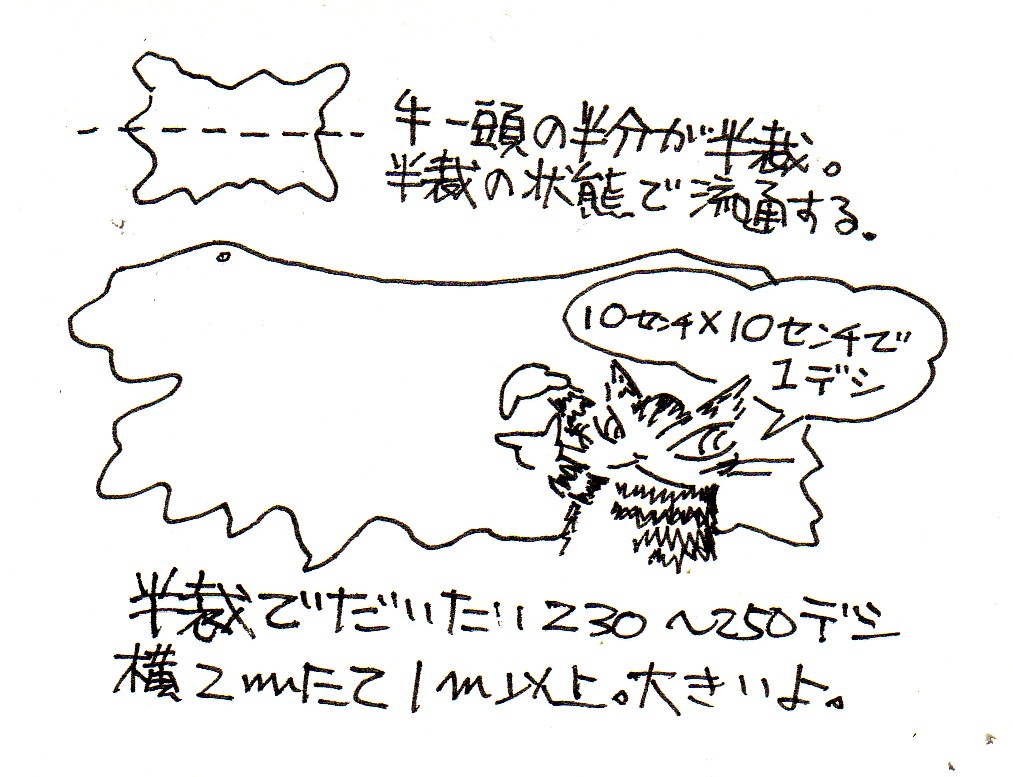 牛一頭の半分が半裁。
半裁の状態で流通する。
10センチ×10センチで
1デシ
半裁でだいたい230〜250デシ
横2mたて1m以上。大きいよ。